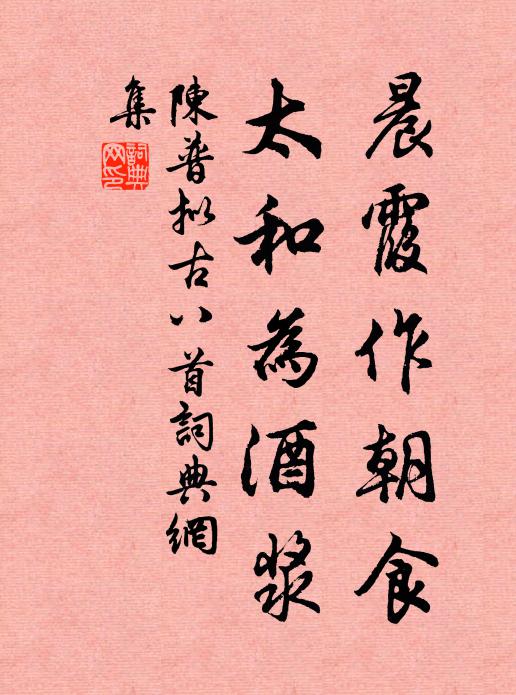 晨霞作朝食
太和為酒漿
陳普拟古八首詞典網
集
詞典
网印